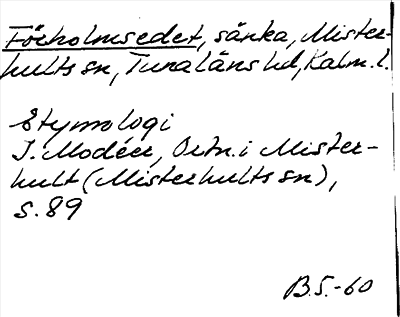 Förholmsedet, sänka, Mister-
hults sn, Tunaläns hd, Kalm. l.
Etymologi
I. Modéer, Ortn. i Mister-
hult (Misterhults sn),
s. 89
B.S.-60